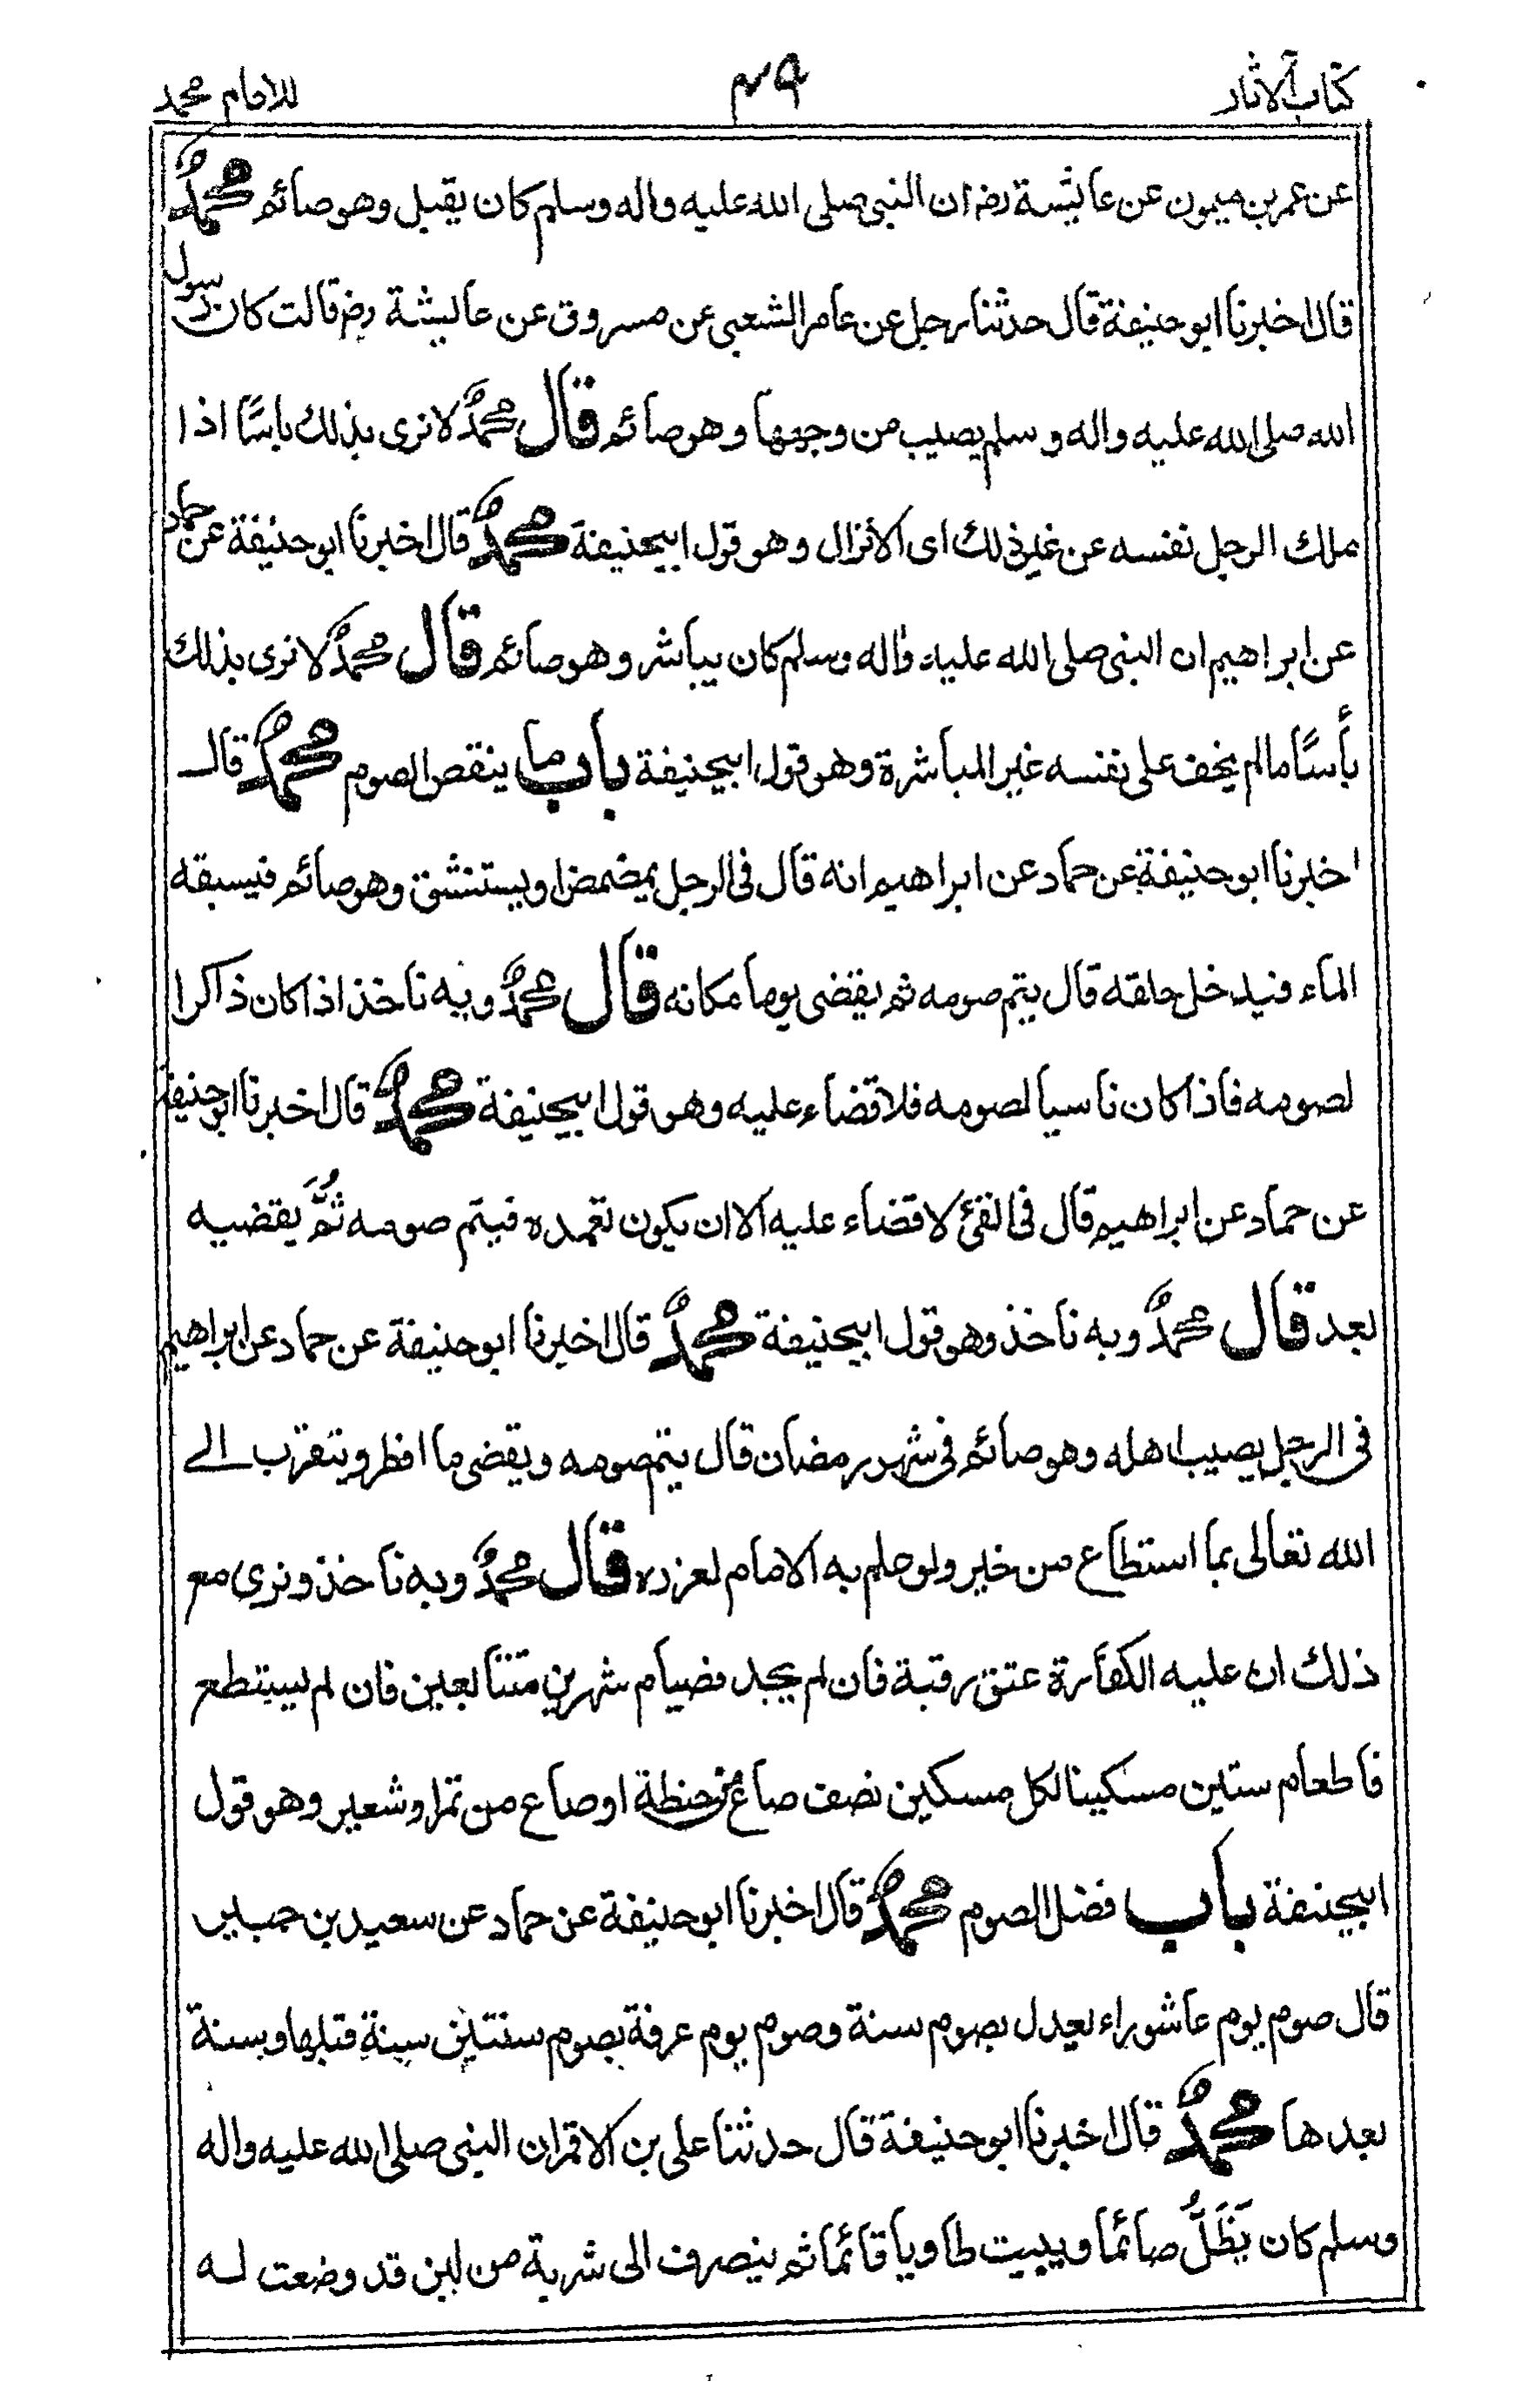 كتاب الآثار
٤٩
للامام محمد
عن عمر بن ميمون عن عائشة رضـ ان النبي صلى الله عليه واله وسلم كان يقبل وهو صائم محمدٌ
قال اخبرنا ابو حنيفة قال حدثنا رجل عن عامر الشعبي عن مسروق عن عائشة رضـ قالت كان رسول
الله صلى الله عليه واله وسلم يصيب من وجهها وهو صائم قال محمدٌ لا نرى بذلك باسًا اذا
ملك الرجل نفسه عن غير ذلك اى الانزال وهو قول ابيحنيفة محمدٌ قال اخبرنا ابو حنيفة عن حماد
عن ابراهيم ان النبي صلى الله عليه واله وسلم كان يباشر وهو صائم قال محمدٌ لا نرى بذلك
بأسًا ما لم يخف على نفسه غير المباشرة وهو قول ابيحنيفة باب ما ينقض الصوم محمدٌ قال
اخبرنا ابو حنيفة عن حماد عن ابراهيم انه قال في الرجل يمضمض او يستنشق وهو صائم فيسبقه
الماء فيدخل حلقه قال يتم صومه ثم يقضى يوما مكانه قال محمدٌ وبه ناخذ اذا كان ذاكرا
لصومه فاذا كان ناسيا لصومه فلا قضاء عليه وهو قول ابيحنيفة محمدٌ قال اخبرنا ابو حنيفة
عن حماد عن ابراهيم قال في القئ لا قضاء عليه الا ان يكون تعمده فيتم صومه ثُمَّ يقضيه
بعد قال محمدٌ وبه ناخذ وهو قول ابيحنيفة محمدٌ قال اخبرنا ابو حنيفة عن حماد عن ابراهيم
في الرجل يصيب اهله وهو صائم في شهر رمضان قال يتم صومه ويقضى ما افطر ويتقرب الى
الله تعالى بما استطاع من خير ولو علم به الامام لعزره قال محمدٌ وبه ناخذ ونرى مع
ذلك ان عليه الكفارة عتق رقبة فان لم يجد فصيام شهرين متتابعين فان لم يستطع
فاطعام ستين مسكينا لكل مسكين نصف صاع من حنطة او صاع من تمر او شعير وهو قول
ابيحنيفة باب فضل الصوم محمدٌ قال اخبرنا ابو حنيفة عن حماد عن سعيد بن جبير
قال صوم يوم عاشوراء يعدل بصوم سنة وصوم يوم عرفة بصوم سنتين سنة قبلها وسنة
بعدها محمدٌ قال اخبرنا ابو حنيفة قال حدثنا على بن الاقمر ان النبي صلى الله عليه واله
وسلم كان يَظَلُّ صائما ويبيت طاويا قائما ثم ينصرف الى شربة من لبن قد وضعت له